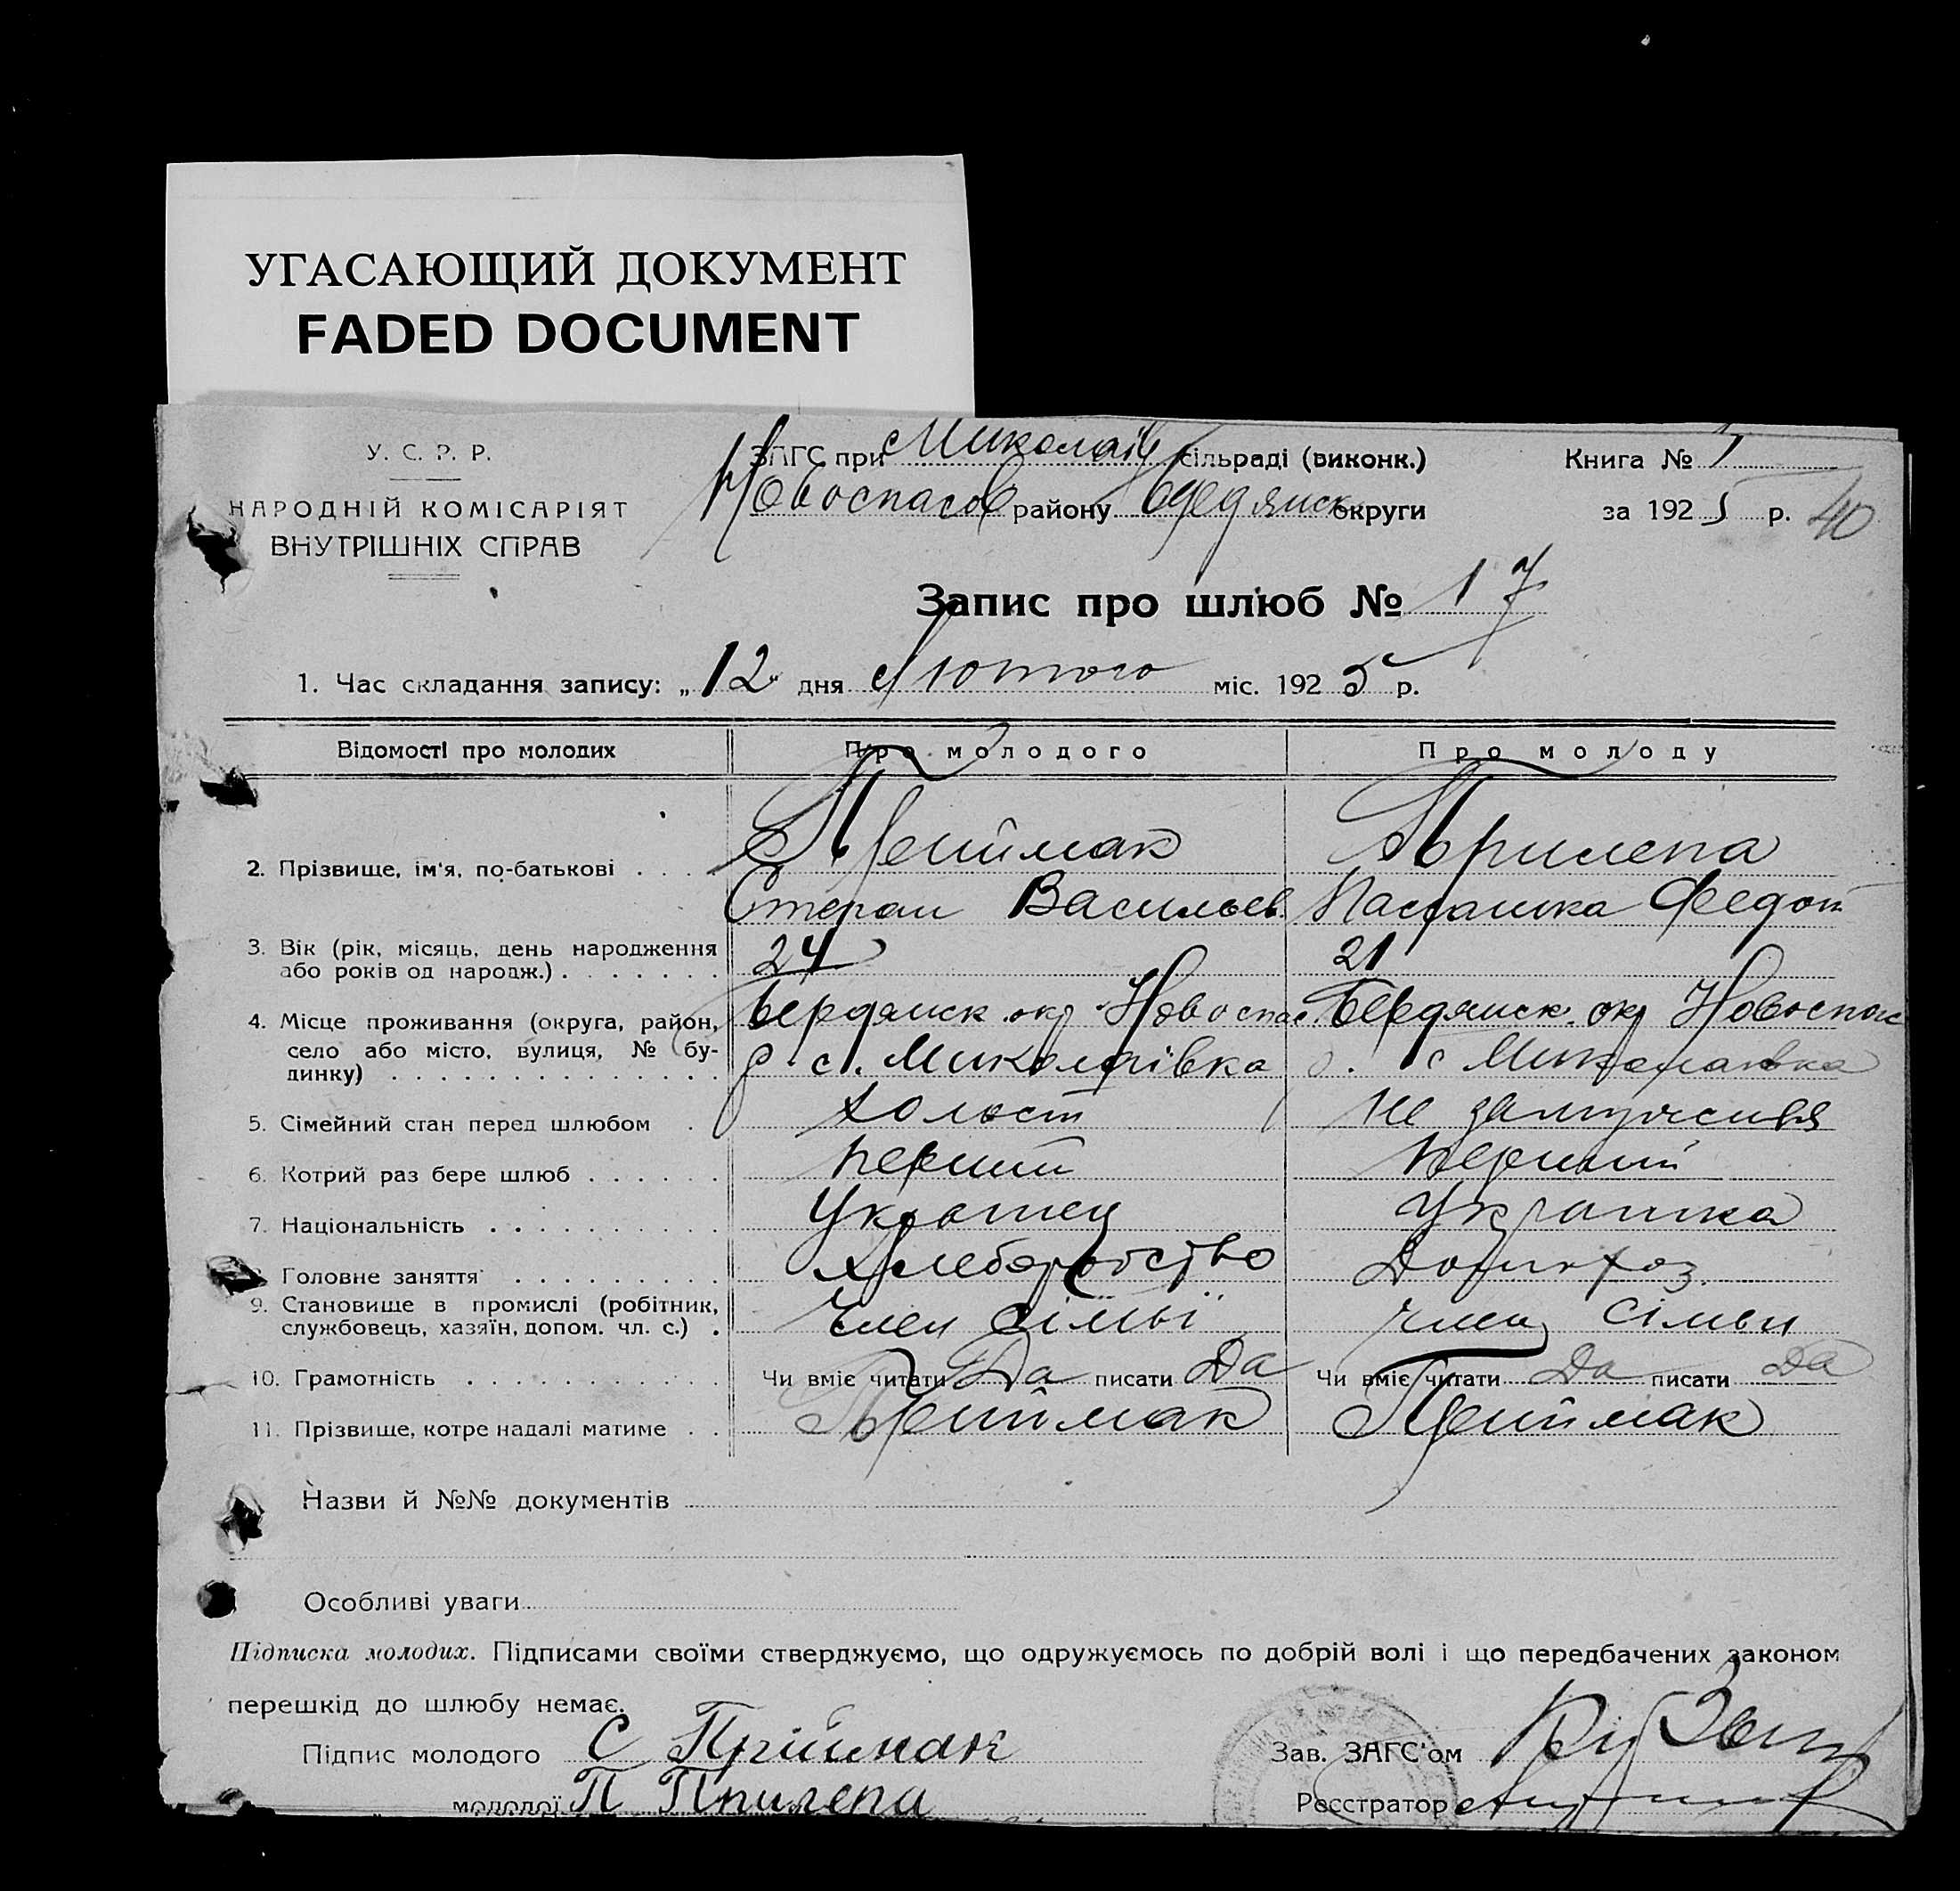 УГАСАЮЩИЙ ДОКУМЕНТ
FADED DOCUMENT
У. С. Р. Р.
НАРОДНІЙ КОМІСАРІЯТ
ВНУТРІШНІХ СПРАВ
ЗАГС при Миколаїв сільраді (виконк.)
Новоспасов району Бердянск округи
Книга № 1
за 1925 р. 40
Запис про шлюб № 17
1. Час складання запису: „12" дня Лютого міс. 1925 р.
Відомості про молодих Про молодого Про молоду
2. Прізвище, ім'я, по-батькові . . . . Приймак Прилепа
Степан Васильев. Параска Федот
3. Вік (рік, місяць, день народження
або років од народж.) . . . . . . . 24 21
4. Місце проживання (округа, район, Бердянск. окр Новоспас. Бердянск. окр Новоспас
село або місто, вулиця, № бу-
динку) . . . . . . . . . . . . . . р. с. Миколаївка р. с Миколаївка
5. Сімейний стан перед шлюбом . . холост не замужняя
6. Котрий раз бере шлюб . . . . . . перший перший
7. Національність . . . . . . . . . . Украінец Украінка
Головне заняття . . . . . . . . . Хлеборобство Домохоз.
9. Становище в промислі (робітник,
службовець, хазяїн, допом. чл. с.) . Член сімьї член сімьи
10. Грамотність . . . . . . . . . . . Чи вміє читати Да писати Да Чи вміє читати Да писати Да
11. Прізвище, котре надалі матиме . . Приймак Приймак
Назви й №№ документів
Особливі уваги
Підписка молодих. Підписами своїми стверджуємо, що одружуємось по добрій волі і що передбачених законом
перешкід до шлюбу немає.
Підпис молодого С Приймак Зав. ЗАГС'ом
молодої П Прилепа Реєстратор